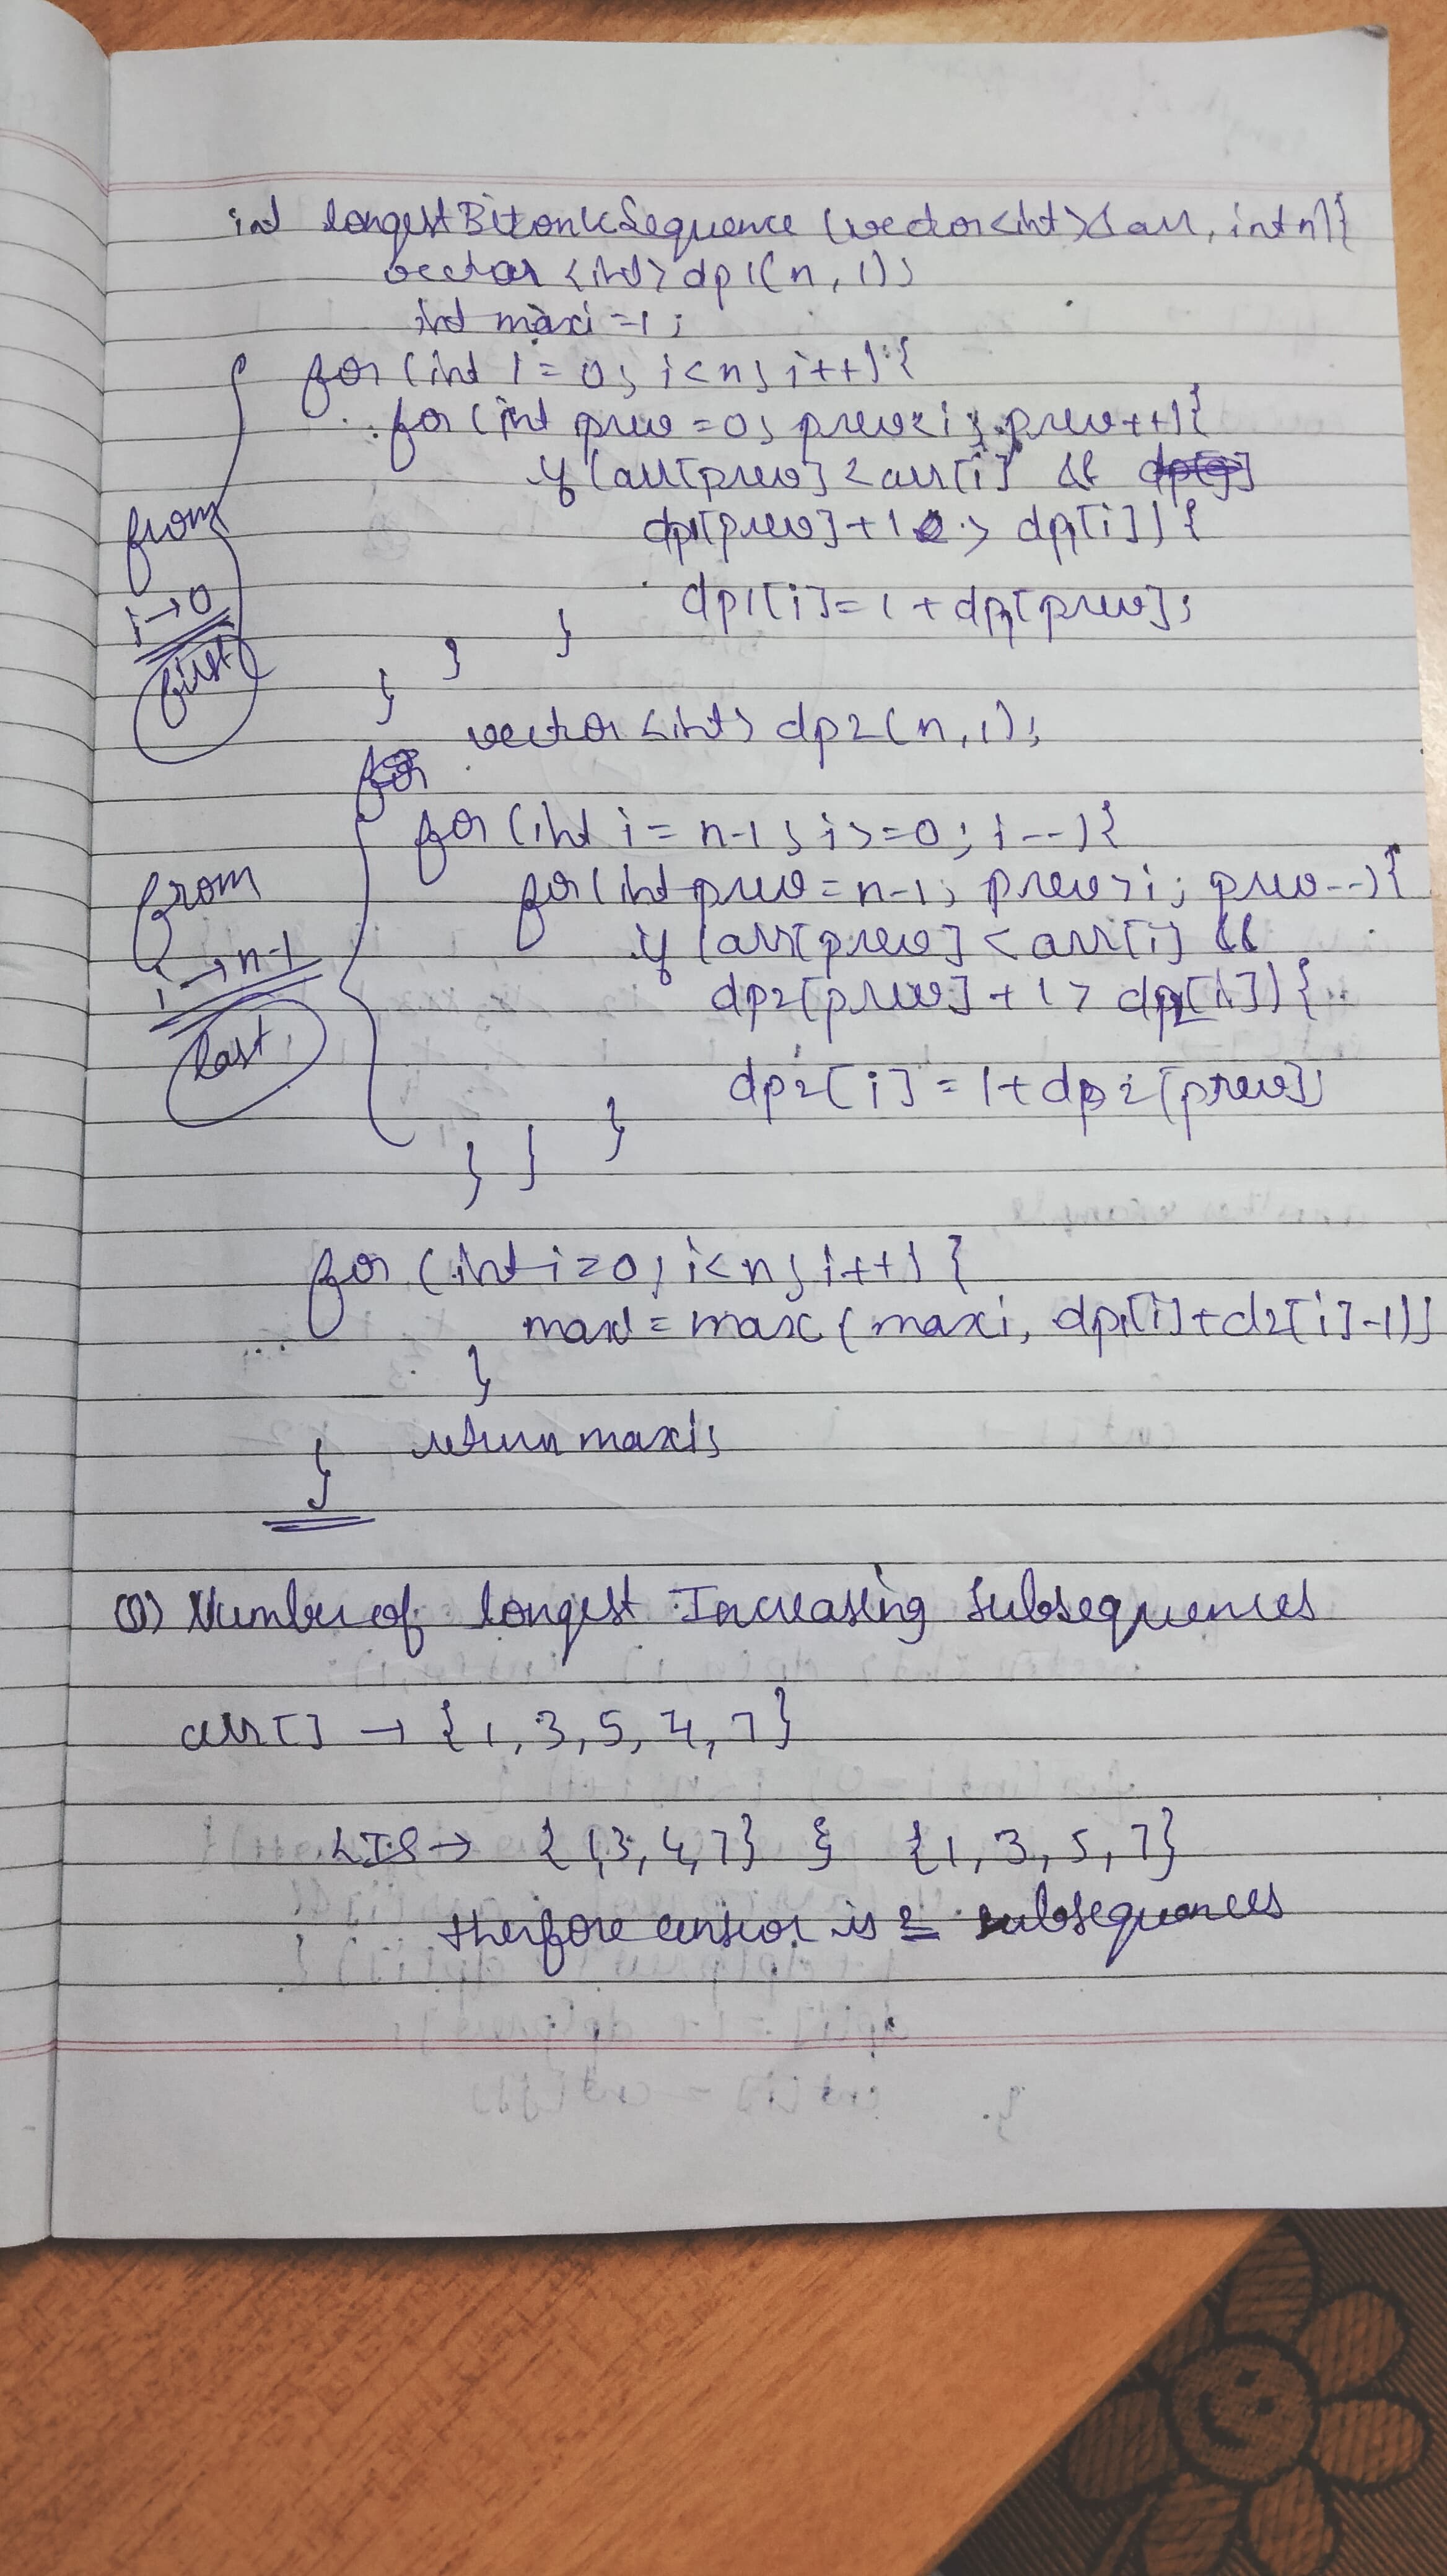 int longestBitonicSequence (vector<int>& arr, int n){
vector <int> dp1(n, 1);
int maxi =1;
for (int i = 0; i<n; i++){
for (int prev =0; prev<i; prev++){
if (arr[prev] < arr[i] &&
dp1[prev]+1 > dp1[i]){
dp1[i]=1+dp1[prev];
}
}
}
from
i→0
first
vector <int> dp2(n,1);
for (int i = n-1; i>=0; i--){
for(int prev=n-1; prev>i; prev--){
if (arr[prev] < arr[i] &&
dp2[prev] +1 > dp2[i]){
dp2[i] =1+dp2[prev];
}
} }
from
i→n-1
last
for (int i=0; i<n; i++) {
maxi = max( maxi, dp1[i]+d2[i]-1);
}
return maxi;
}
Q) Number of longest Increasing Subsequences
arr[] → {1, 3, 5, 4, 7}
LIS → {1,3,4,7} & {1, 3, 5, 7}
is 2 subsequences